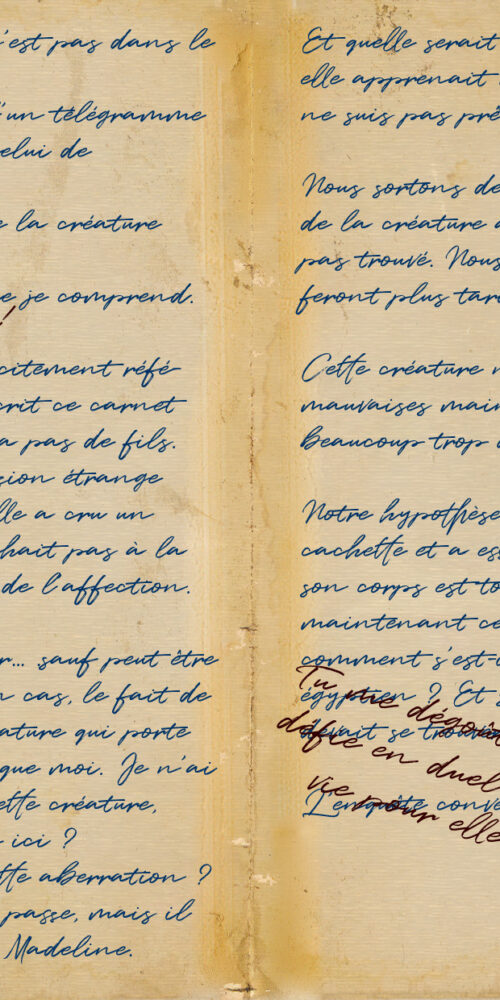 'est pas dans le
'un télégramme
elui de
e la créature
e je comprend.
!
citement réfé-
crit ce carnet
a pas de fils.
sion étrange
lle a cru un
hait pas à la
de l'affection.
r... sauf peut être
n cas, le fait de
ature qui porte
que moi. Je n'ai
ette créature,
ici ?
tte aberration ?
passe, mais il
Madeline.
Et quelle serait
elle apprenait
ne suis pas prê
Nous sortons de
de la créature
pas trouvé. Nous
feront plus tar
Cette créature
mauvaises main
beaucoup trop
Notre hypothèse
cachette et a es
son corps est to
maintenant ce
comment s'est-
égyptien ? Et
devait se trouver
L'enquête conve
Tu me dégoût
défie en duel
vie pour elle